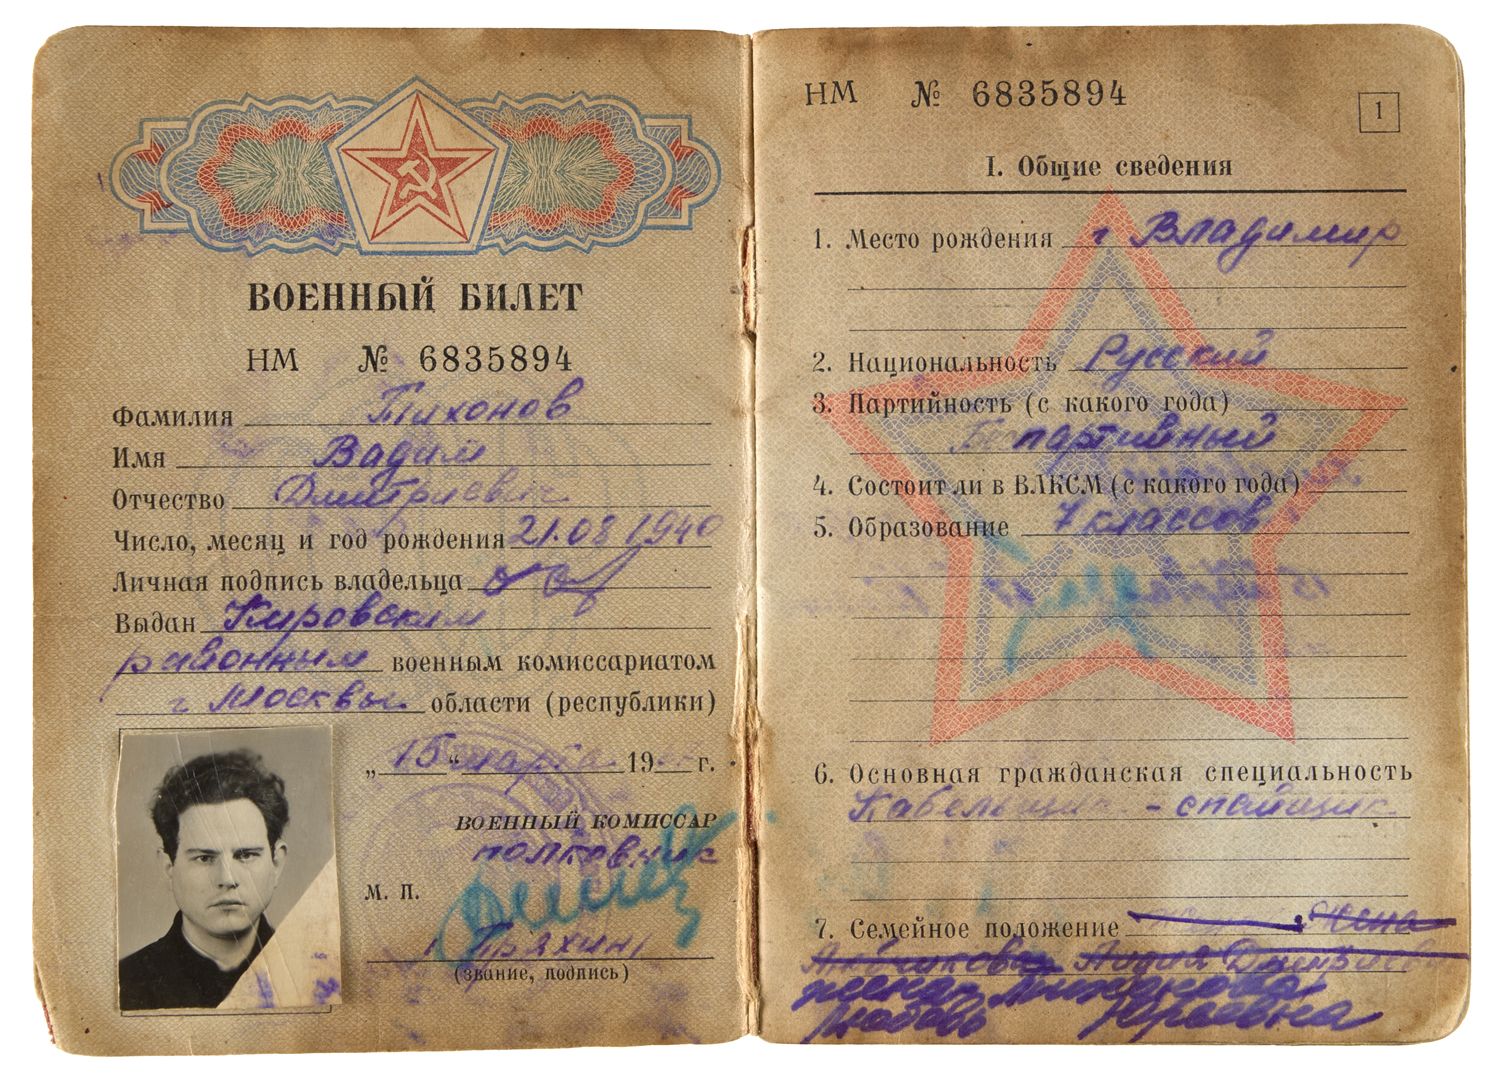 ВОЕННЫЙ БИЛЕТ
НМ № 6835894
Фамилия Тихонов
Имя Вадим
Отчество Дмитриевич
Число, месяц и год рождения 21.08 1940
Личная подпись владельца
Выдан Кировским
районным военным комиссариатом
г Москвы области (республики)
„15“ марта 19 г.
ВОЕННЫЙ КОМИССАР
полковник
М. П.
(звание, подпись)
НМ № 6835894
1
I. Общие сведения
1. Место рождения г Владимир
2. Национальность Русский
3. Партийность (с какого года)
Беспартийный
4. Состоит ли в ВЛКСМ (с какого года)
5. Образование 7 классов
6. Основная гражданская специальность
Кабельщик - спайщик
7. Семейное положение жена
Лидия
жена
Любовь Юрьевна